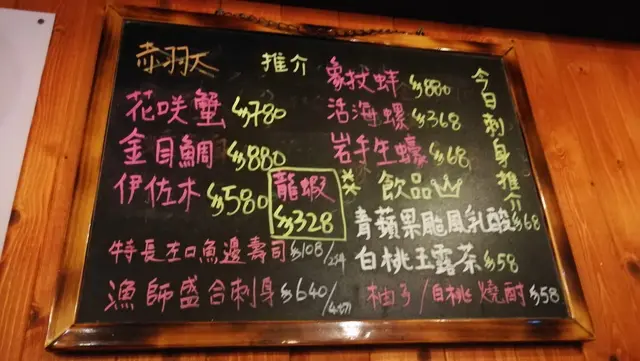 赤羽天 推介
花咲蟹 $780
金目鯛 $880
伊佐木 $580
龍蝦
$328
特長左口魚邊壽司 $108/2件
漁師盛合刺身 $640/4切
象拔蚌 $880
活海螺 $368
岩手生蠔 $68
飲品
青蘋果颱風乳酸 $68
白桃玉露茶 $58
柚子/白桃燒酎 $58
今日刺身推介